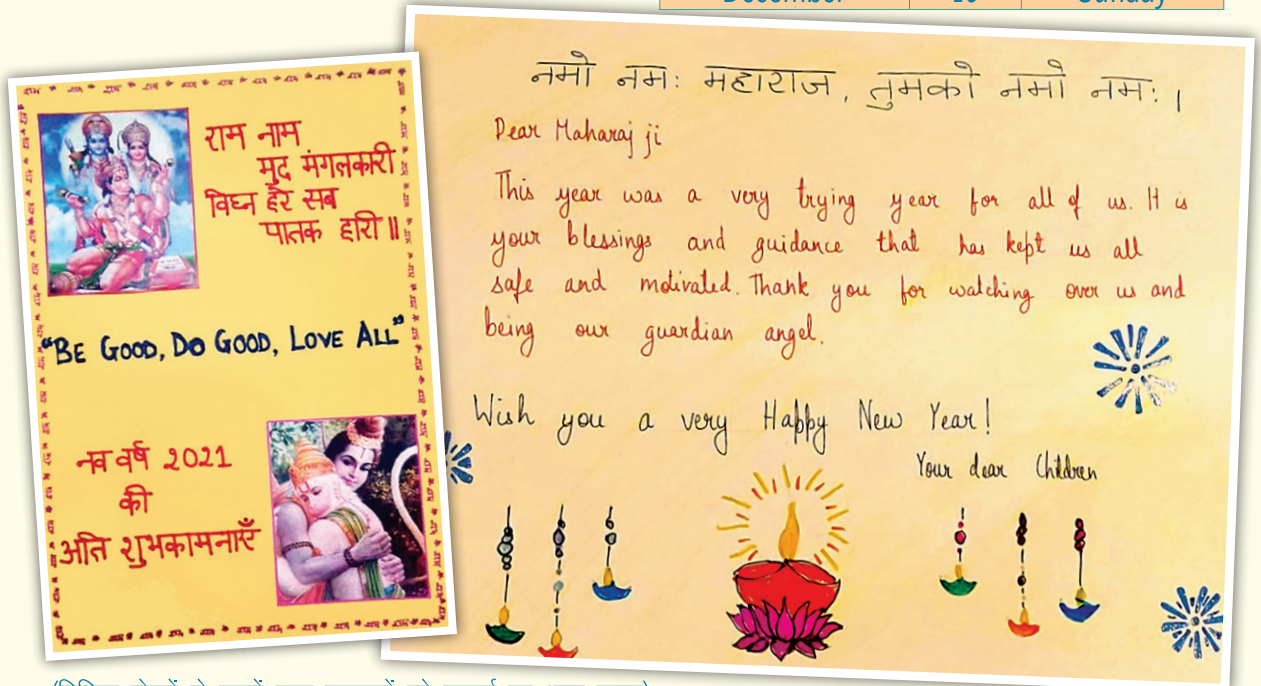 December 10 Sunday
राम नाम
मुद मंगलकारी
विघ्न हरे सब
पातक हारी॥
"BE GOOD, DO GOOD, LOVE ALL"
नव वर्ष 2021
की
अति शुभकामनाएँ
नमो नमः महाराज, तुमको नमो नमः।
Dear Maharaj ji
This year was a very trying year for all of us. It is
your blessings and guidance that has kept us all
safe and motivated. Thank you for watching over us and
being our guardian angel.
Wish you a very Happy New Year!
Your dear Children